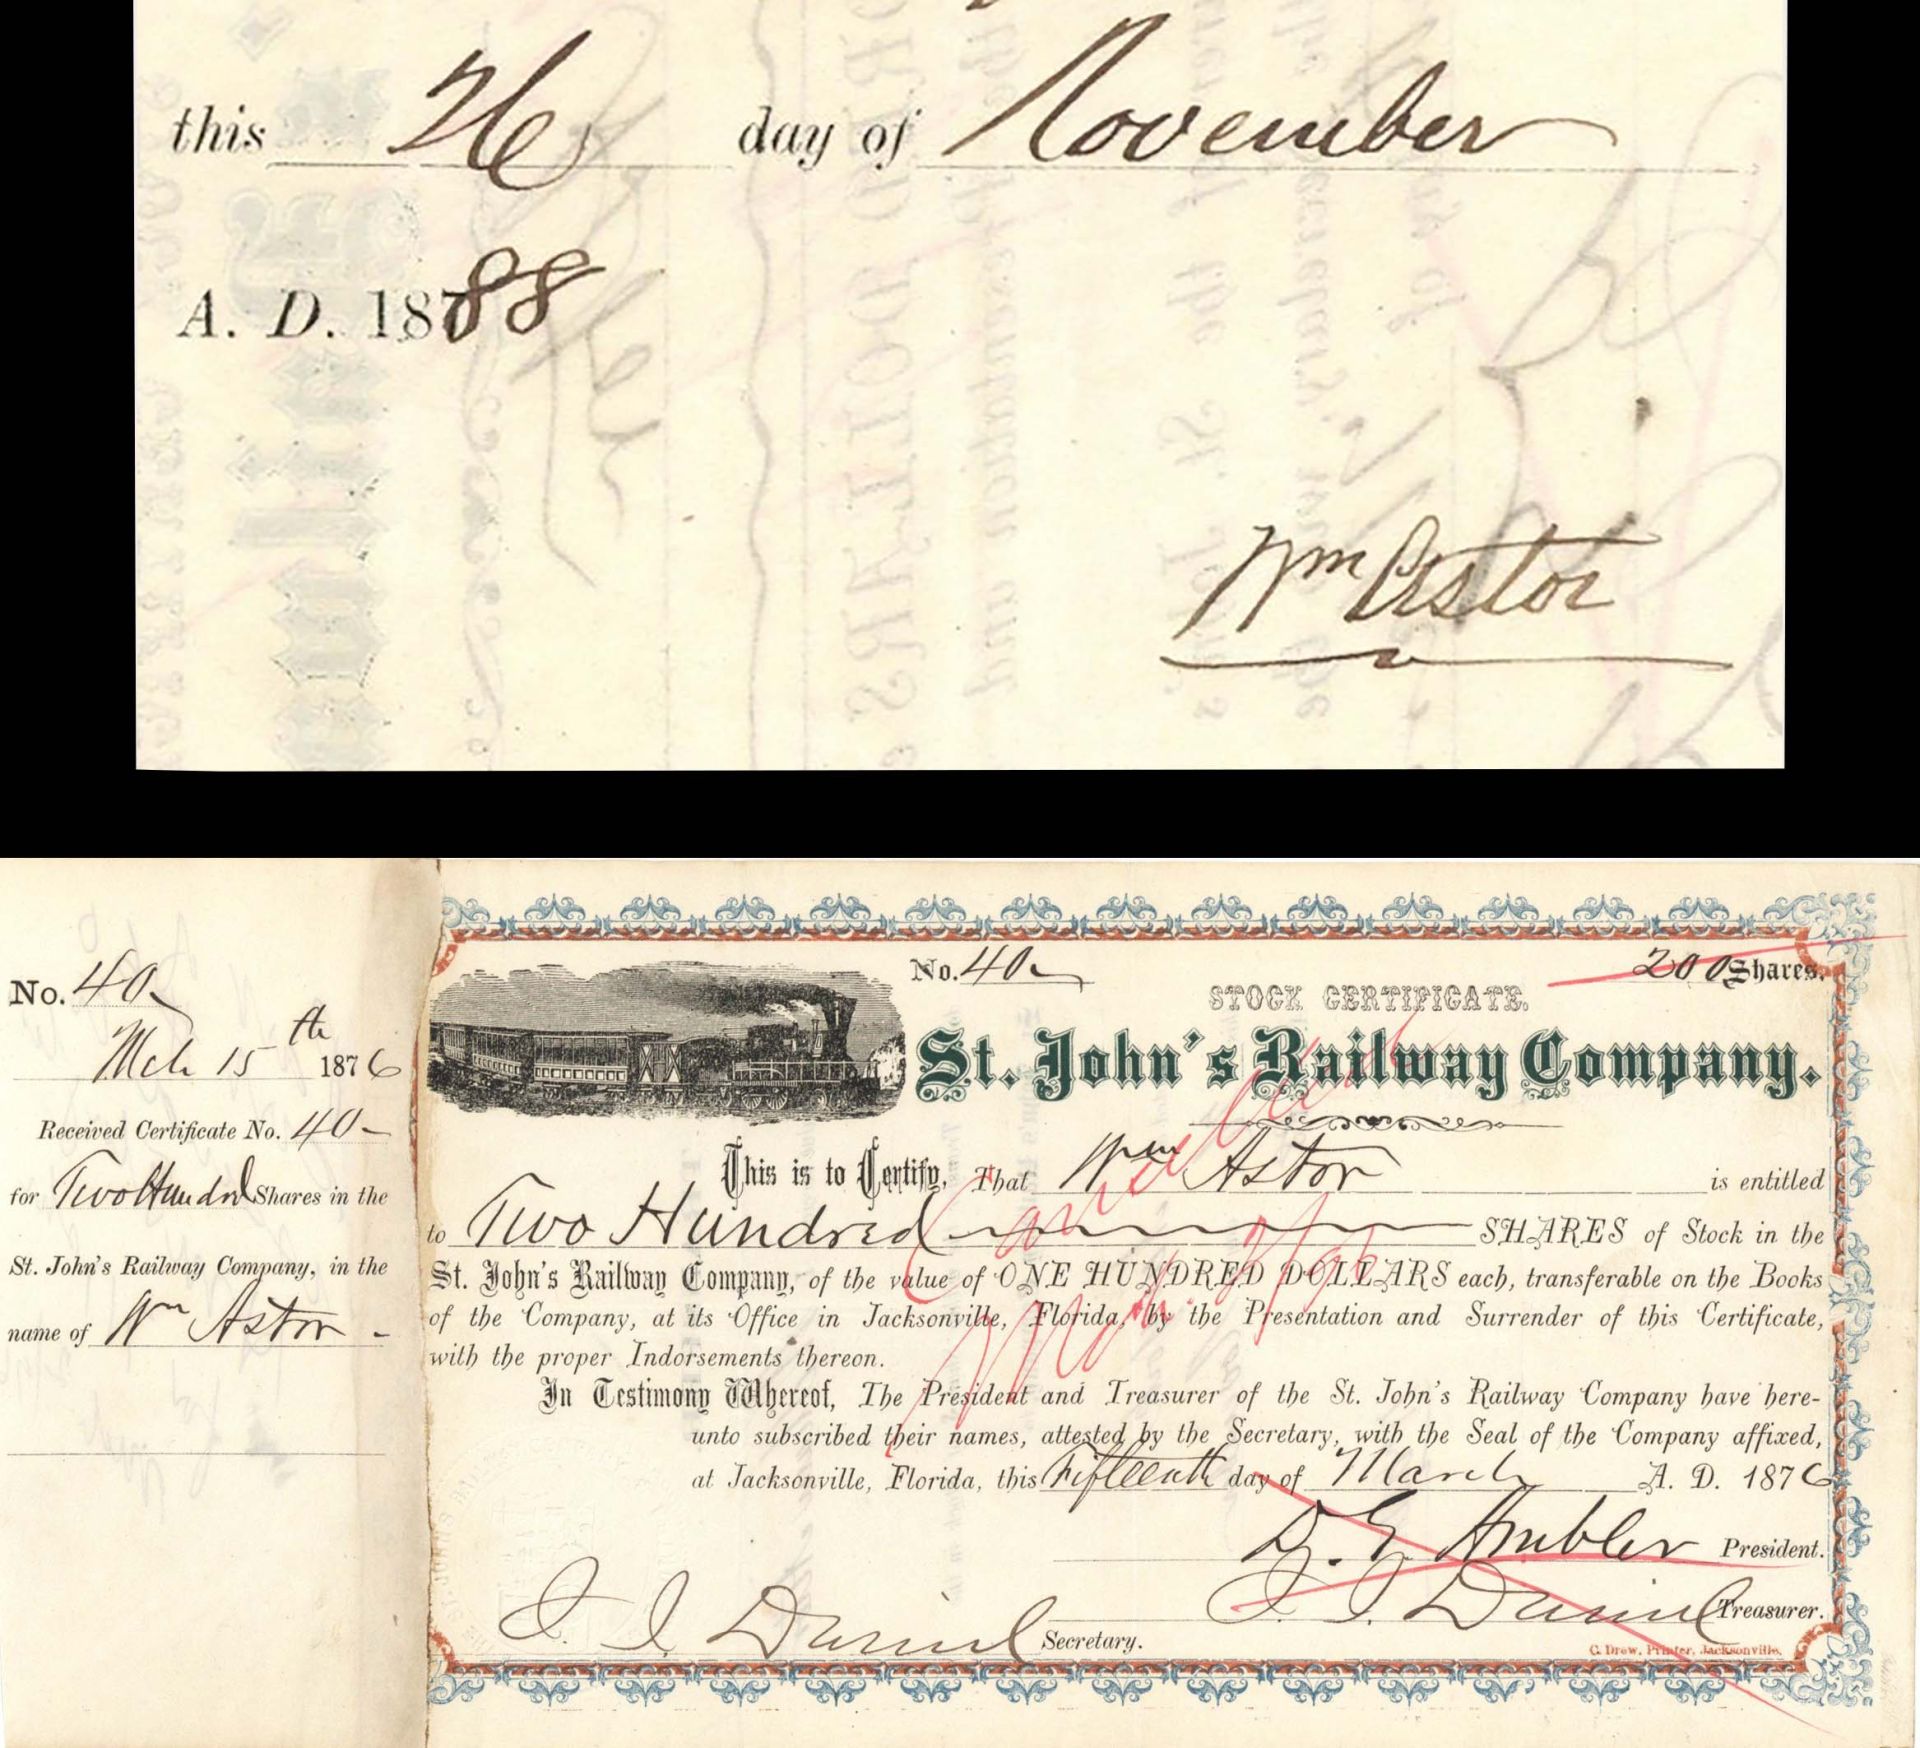 this 26 day of November
A. D. 1888
Wm Astor
No. 40
Mch 15th 1876
Received Certificate No. 40
for Two Hundrd Shares in the
St. John's Railway Company, in the
name of Wm Astor
No. 40
200 Shares.
STOCK CERTIFICATE.
St. John's Railway Company.
This is to Certify, That Wm Astor is entitled
to Two Hundred SHARES of Stock in the
St. John's Railway Company, of the value of ONE HUNDRED DOLLARS each, transferable on the Books
of the Company, at its Office in Jacksonville, Florida, by the Presentation and Surrender of this Certificate,
with the proper Indorsements thereon.
Cancelled
In Testimony Whereof, The President and Treasurer of the St. John's Railway Company have here-
unto subscribed their names, attested by the Secretary, with the Seal of the Company affixed,
at Jacksonville, Florida, this Fifteenth day of March A. D. 1876
D. G. Ambler President.
J. J. Daniel Treasurer.
J. J. Daniel Secretary.
C. Drew, Printer, Jacksonville.